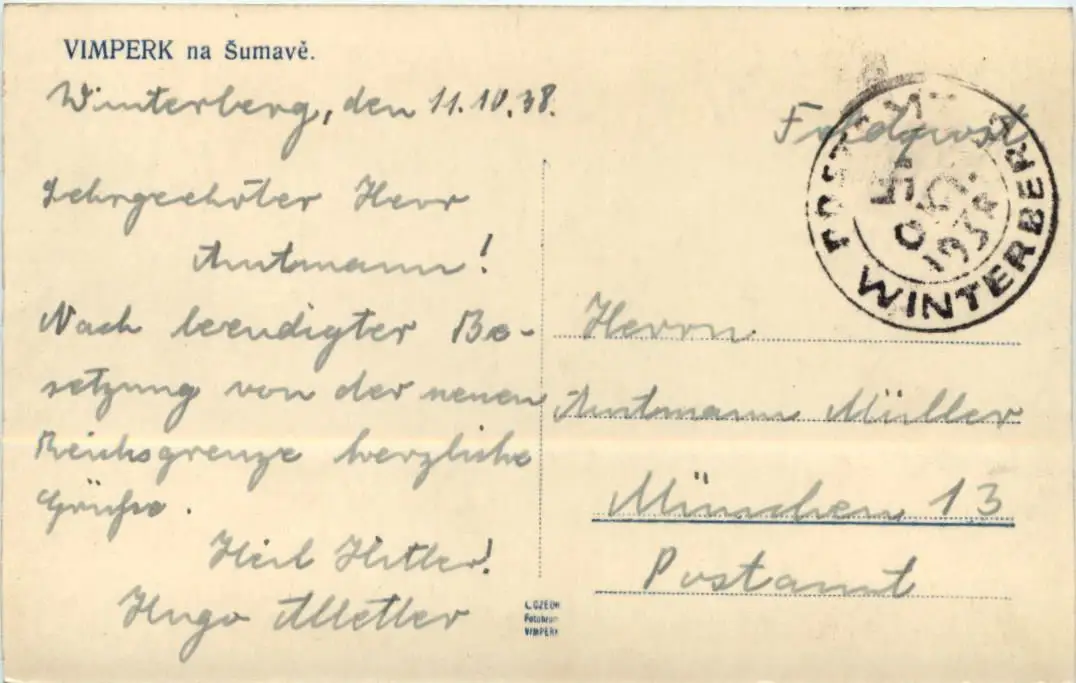 VIMPERK na Šumavě.
Winterberg, den 11.10.38.
Feldpost
Sehrgeehrter Herr
Amtmann!
Nach beendigter Be-
setzung von der neuen
Reichsgrenze herzliche
Grüße.
Heil Hitler!
Hugo
Herrn
Amtmann Müller
München 13
Postamt
WINTERBERG
1938
Fotohrom
VIMPERK